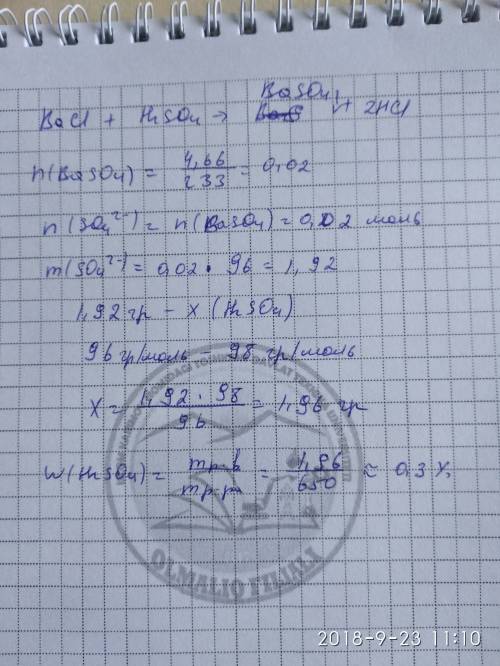 BaSO₄↓
BaCl + H₂SO₄ → + 2HCl
n(BaSO₄) = 4,66 / 233 = 0,02
n(SO₄²⁻) = n(BaSO₄) = 0,02 моль
m(SO₄²⁻) = 0,02 · 96 = 1,92
1,92 гр – x (H₂SO₄)
96 гр/моль – 98 гр/моль
X = 1,92 · 98 / 96 = 1,96 гр
W(H₂SO₄) = mр.в / mр-ра = 1,96 / 650 ≈ 0,3 %
OLMALIQ FILIALI
2018-9-23 11:10